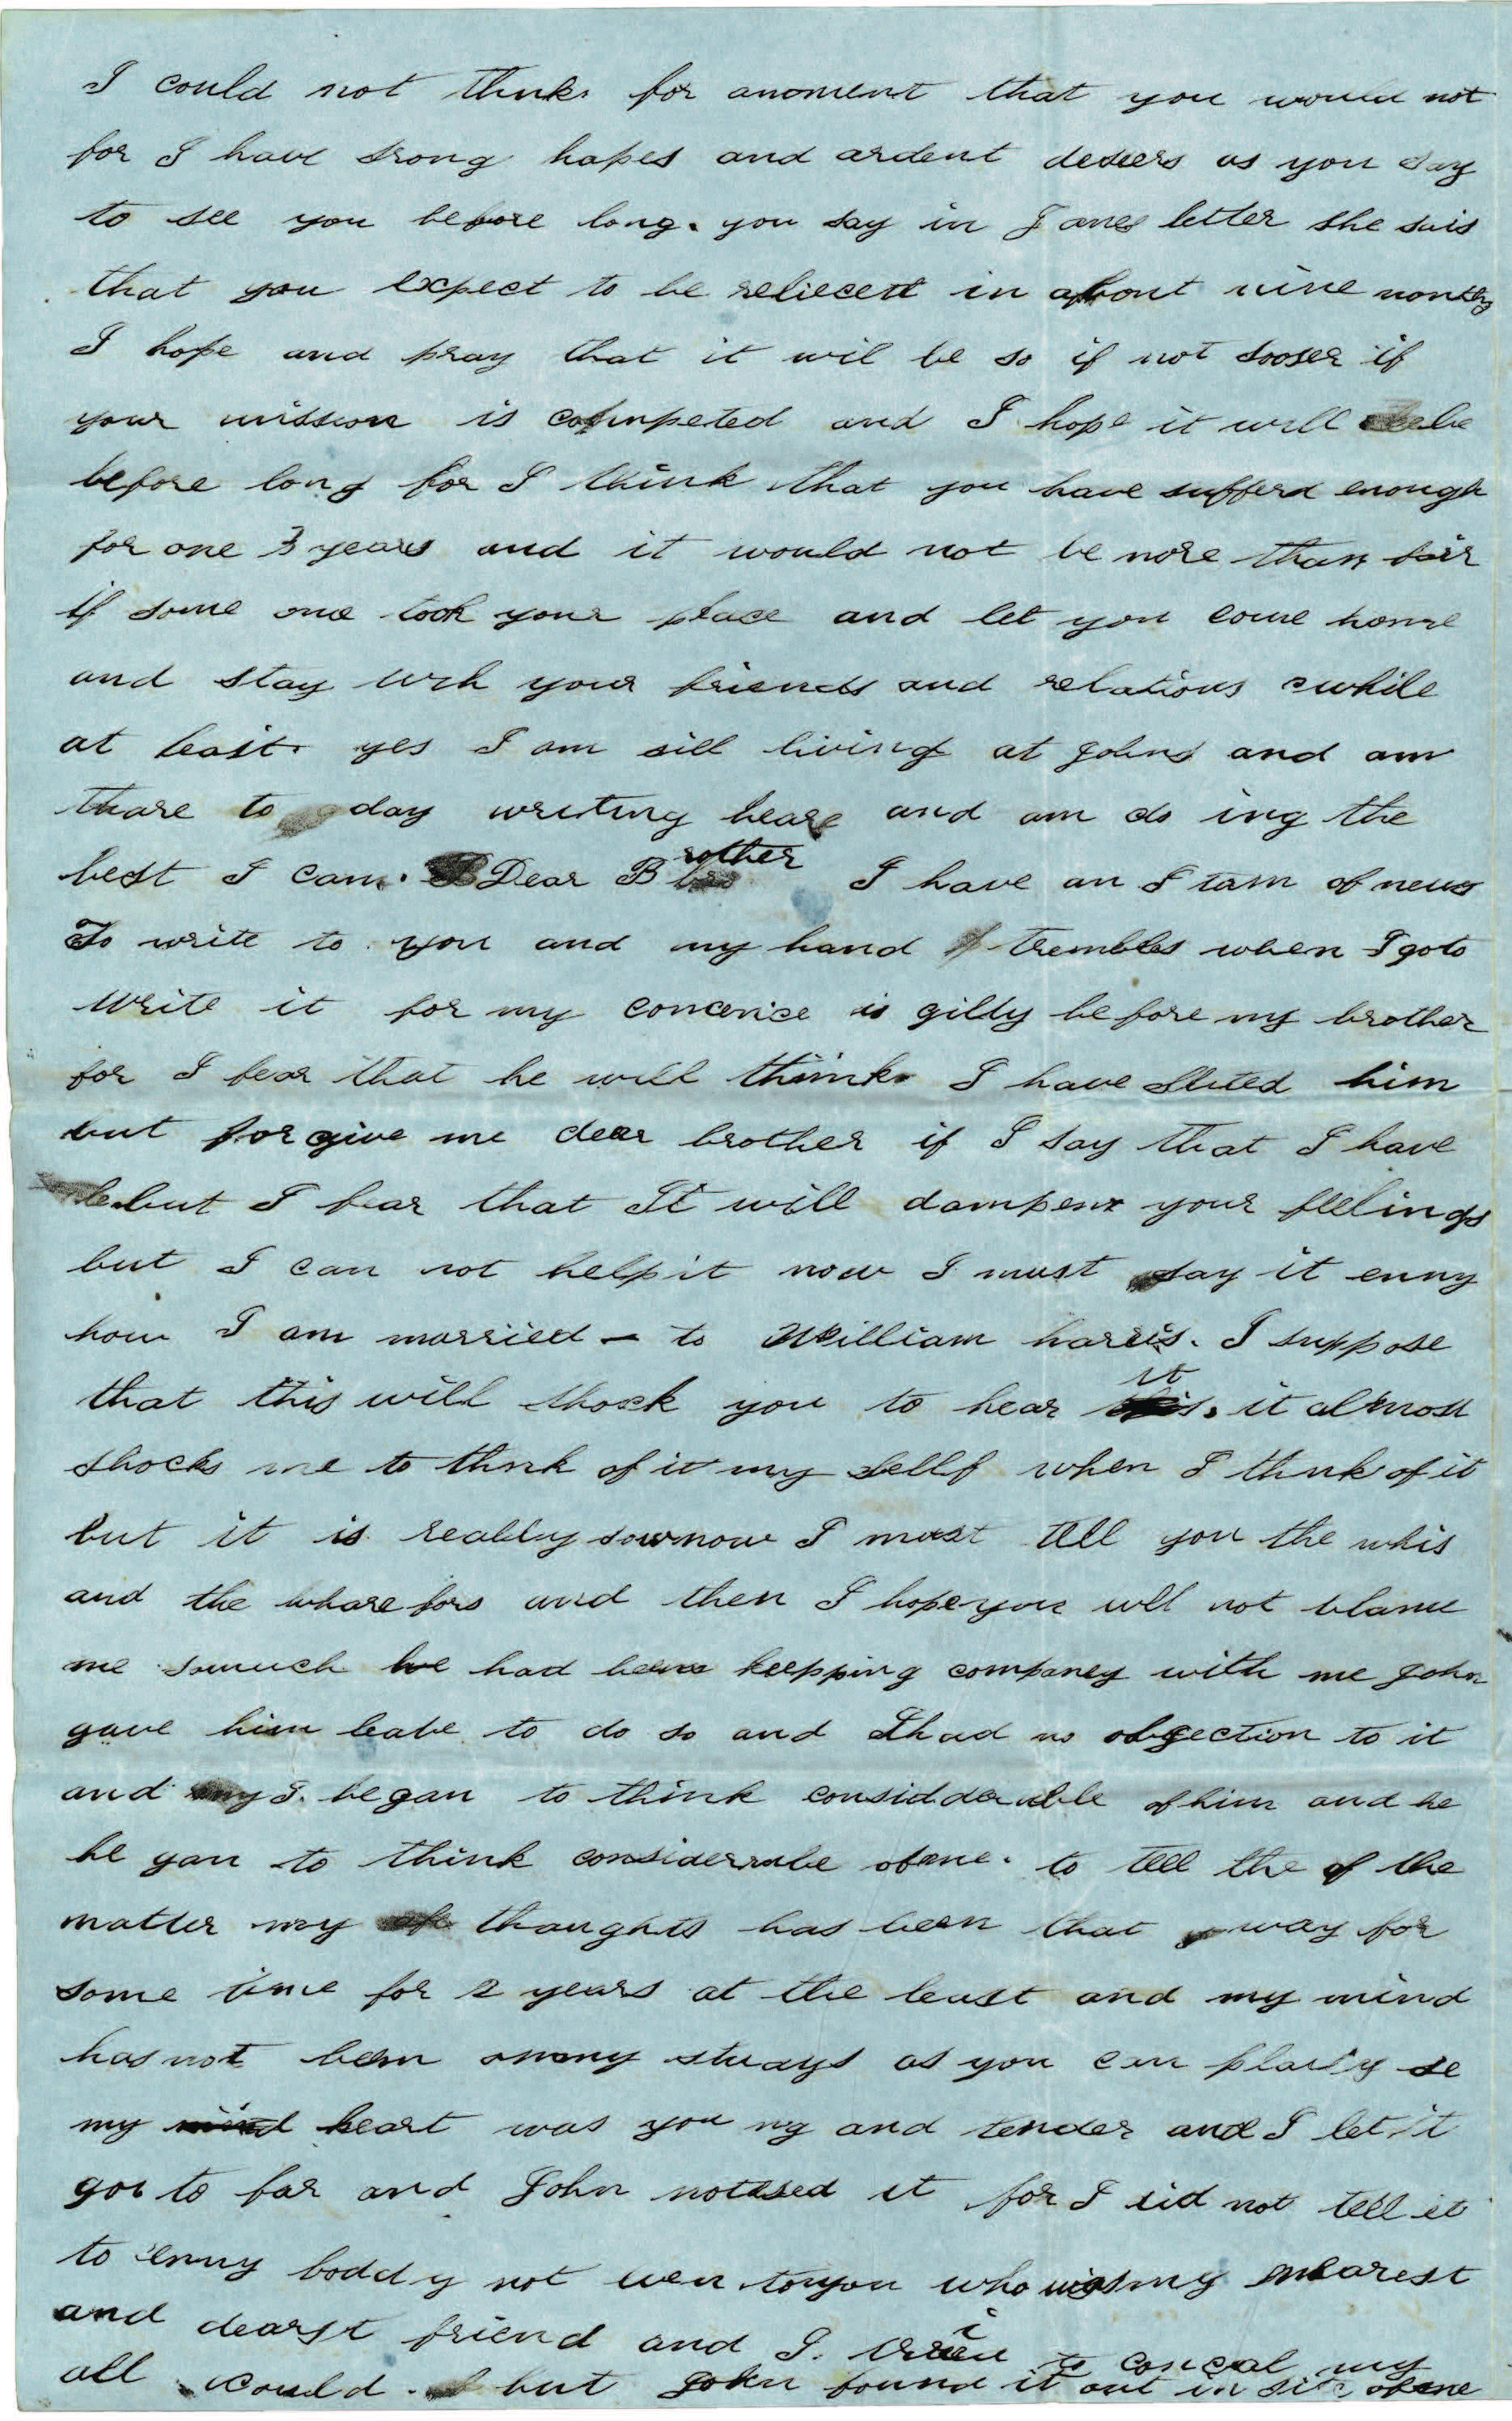 I could not think for amoment that you would not
for I have srong hopes and ardent deseers as you say
to see you before long. you say in Janes letter she sais
that you expect to be relieced in about nine months
I hope and pray that it wil be so if not sooser if
your mission is competed and I hope it will be
before long for I think that you have sufferd enough
for one 3 years and it would not be more than fair
if some one took your place and let you come home
and stay with your friends and relations awhile
at least. yes I am sill living at Johns and am
thare to day writing heare and am do ing the
best I can. Dear Brother I have an I tam of news
To write to you and my hand trembles when I go to
write it for my concence is gilty be fore my brother
for I fear that he will think I have Slited him
but for give me dear brother if I say that I have
but I fear that It will dampen your feelings
but I can not help it now I must say it enny
how I am married - to William harris. I suppose
that this will shock you to hear it. it almost
shocks me to think of it my sellf when I think of it
but it is reablly sow now I must tell you the whis
and the wharefors and then I hope you will not blame
me somuch he had been keepping company with me John
gave him leave to do so and I had no objection to it
and I. began to think considderable of him and he
be gan to think considerrabe of me. to tell the of the
matter my thoughts has been that way for
some time for 2 years at the least and my mind
has not been on my studys as you can plainly se
my heart was you ng and tender and I let it
go to far and John notised it for I did not tell it
to enny bodd y not even to you who was my nearest
and dearst friend and I. tried to conceal my
all I could. but John found it out in site of me